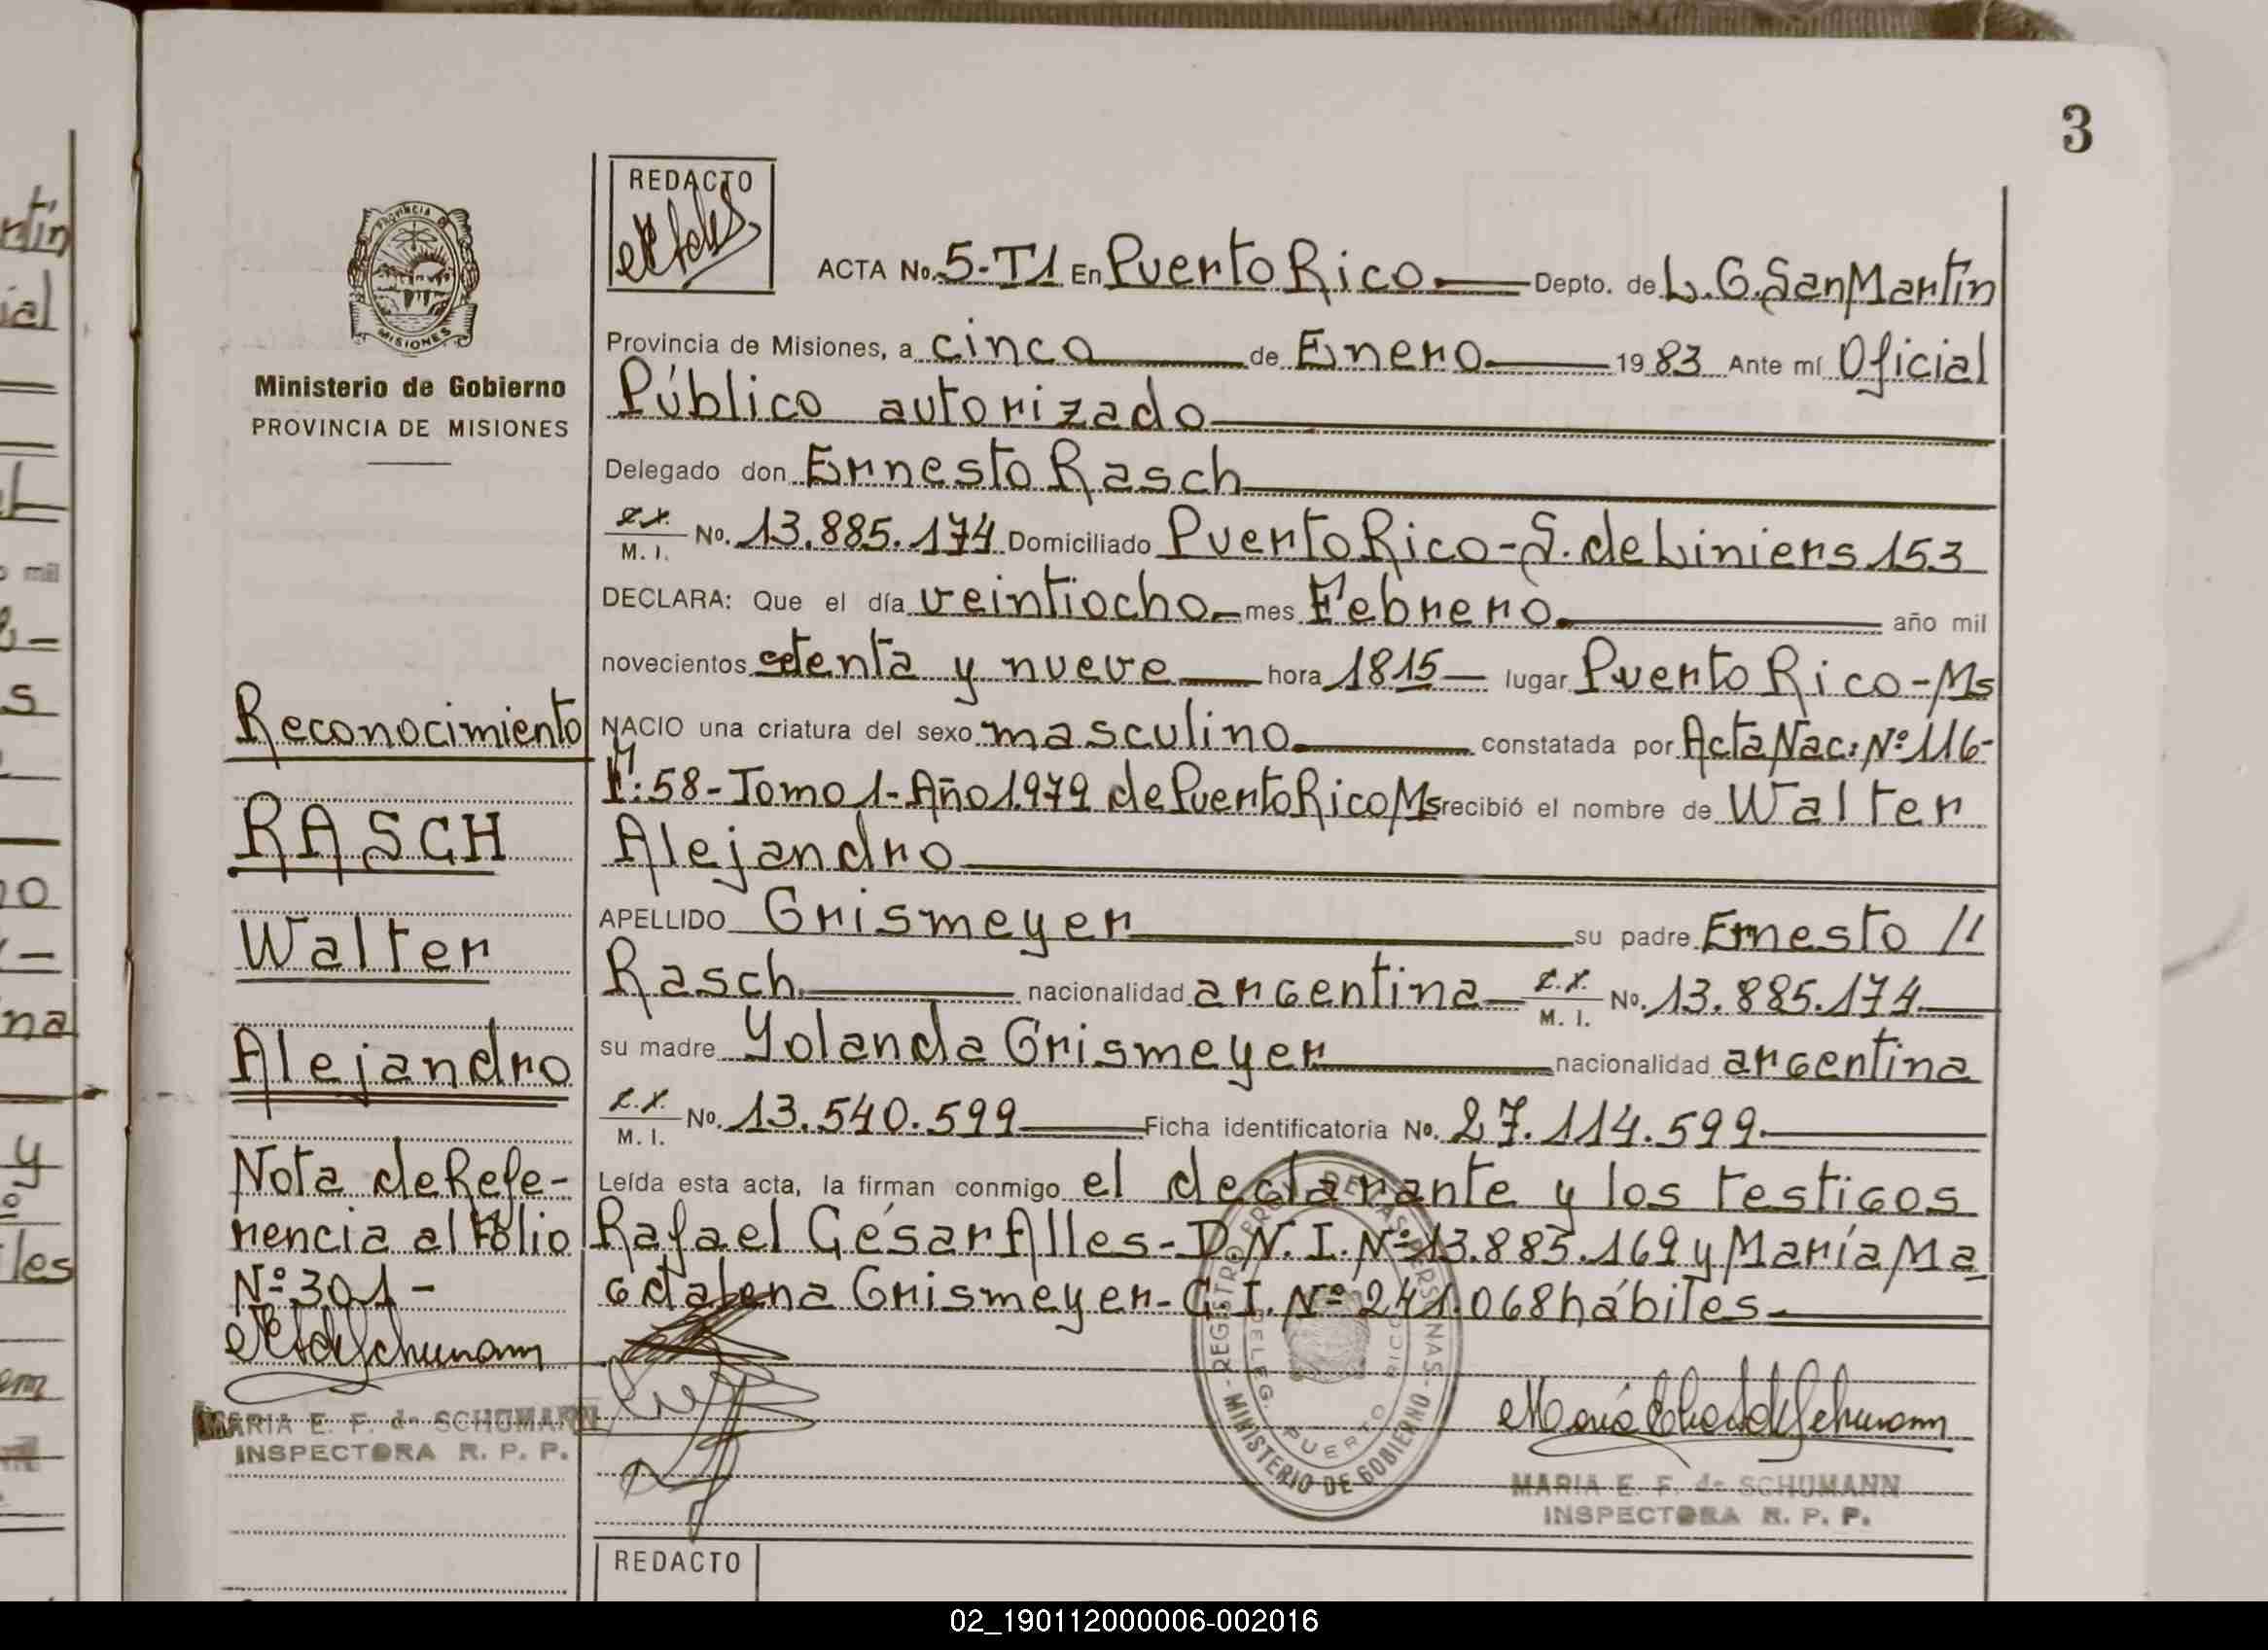 3
REDACTO
ACTA No. 5-T1 En Puerto Rico Depto. de L. G. San Martín
Provincia de Misiones, a cinco de Enero 1983 Ante mí Oficial
Público autorizado
Delegado don Ernesto Rasch
M. I. No. 13.885.174 Domiciliado Puerto Rico-S. de Liniers 153
DECLARA: Que el día veintiocho mes Febrero año mil
novecientos setenta y nueve hora 1815 lugar Puerto Rico-Ms
NACIO una criatura del sexo masculino constatada por Acta Nac: Nº 116-
Fº: 58-Tomo 1-Año 1979 de Puerto Rico Ms recibió el nombre de Walter
Alejandro
APELLIDO Grismeyer su padre Ernesto //
Rasch nacionalidad argentina M. I. No. 13.885.174
su madre Yolanda Grismeyer nacionalidad argentina
M. I. No. 13.540.599 Ficha identificatoria No. 27.114.599
Leída esta acta, la firman conmigo el declarante y los testigos
Rafael César Alles-D.N.I. Nº 13.885.169 y María Ma
gdalena Grismeyer-C.I. Nº 241.068 hábiles
MARIA E. F. de SCHUMANN
INSPECTORA R. P. P.
REGISTRO PROV. DE LAS PERSONAS
MINISTERIO DE GOBIERNO
DELEG. PUERTO RICO
REDACTO
Provincia de
MISIONES
Ministerio de Gobierno
PROVINCIA DE MISIONES
Reconocimiento
RASCH
Walter
Alejandro
Nota de Refe-
rencia al Folio
Nº 301-
MARIA E. F. de SCHUMANN
INSPECTORA R. P. P.
rtín
ial
mil
s
no
na
y
les
02_190112000006-002016